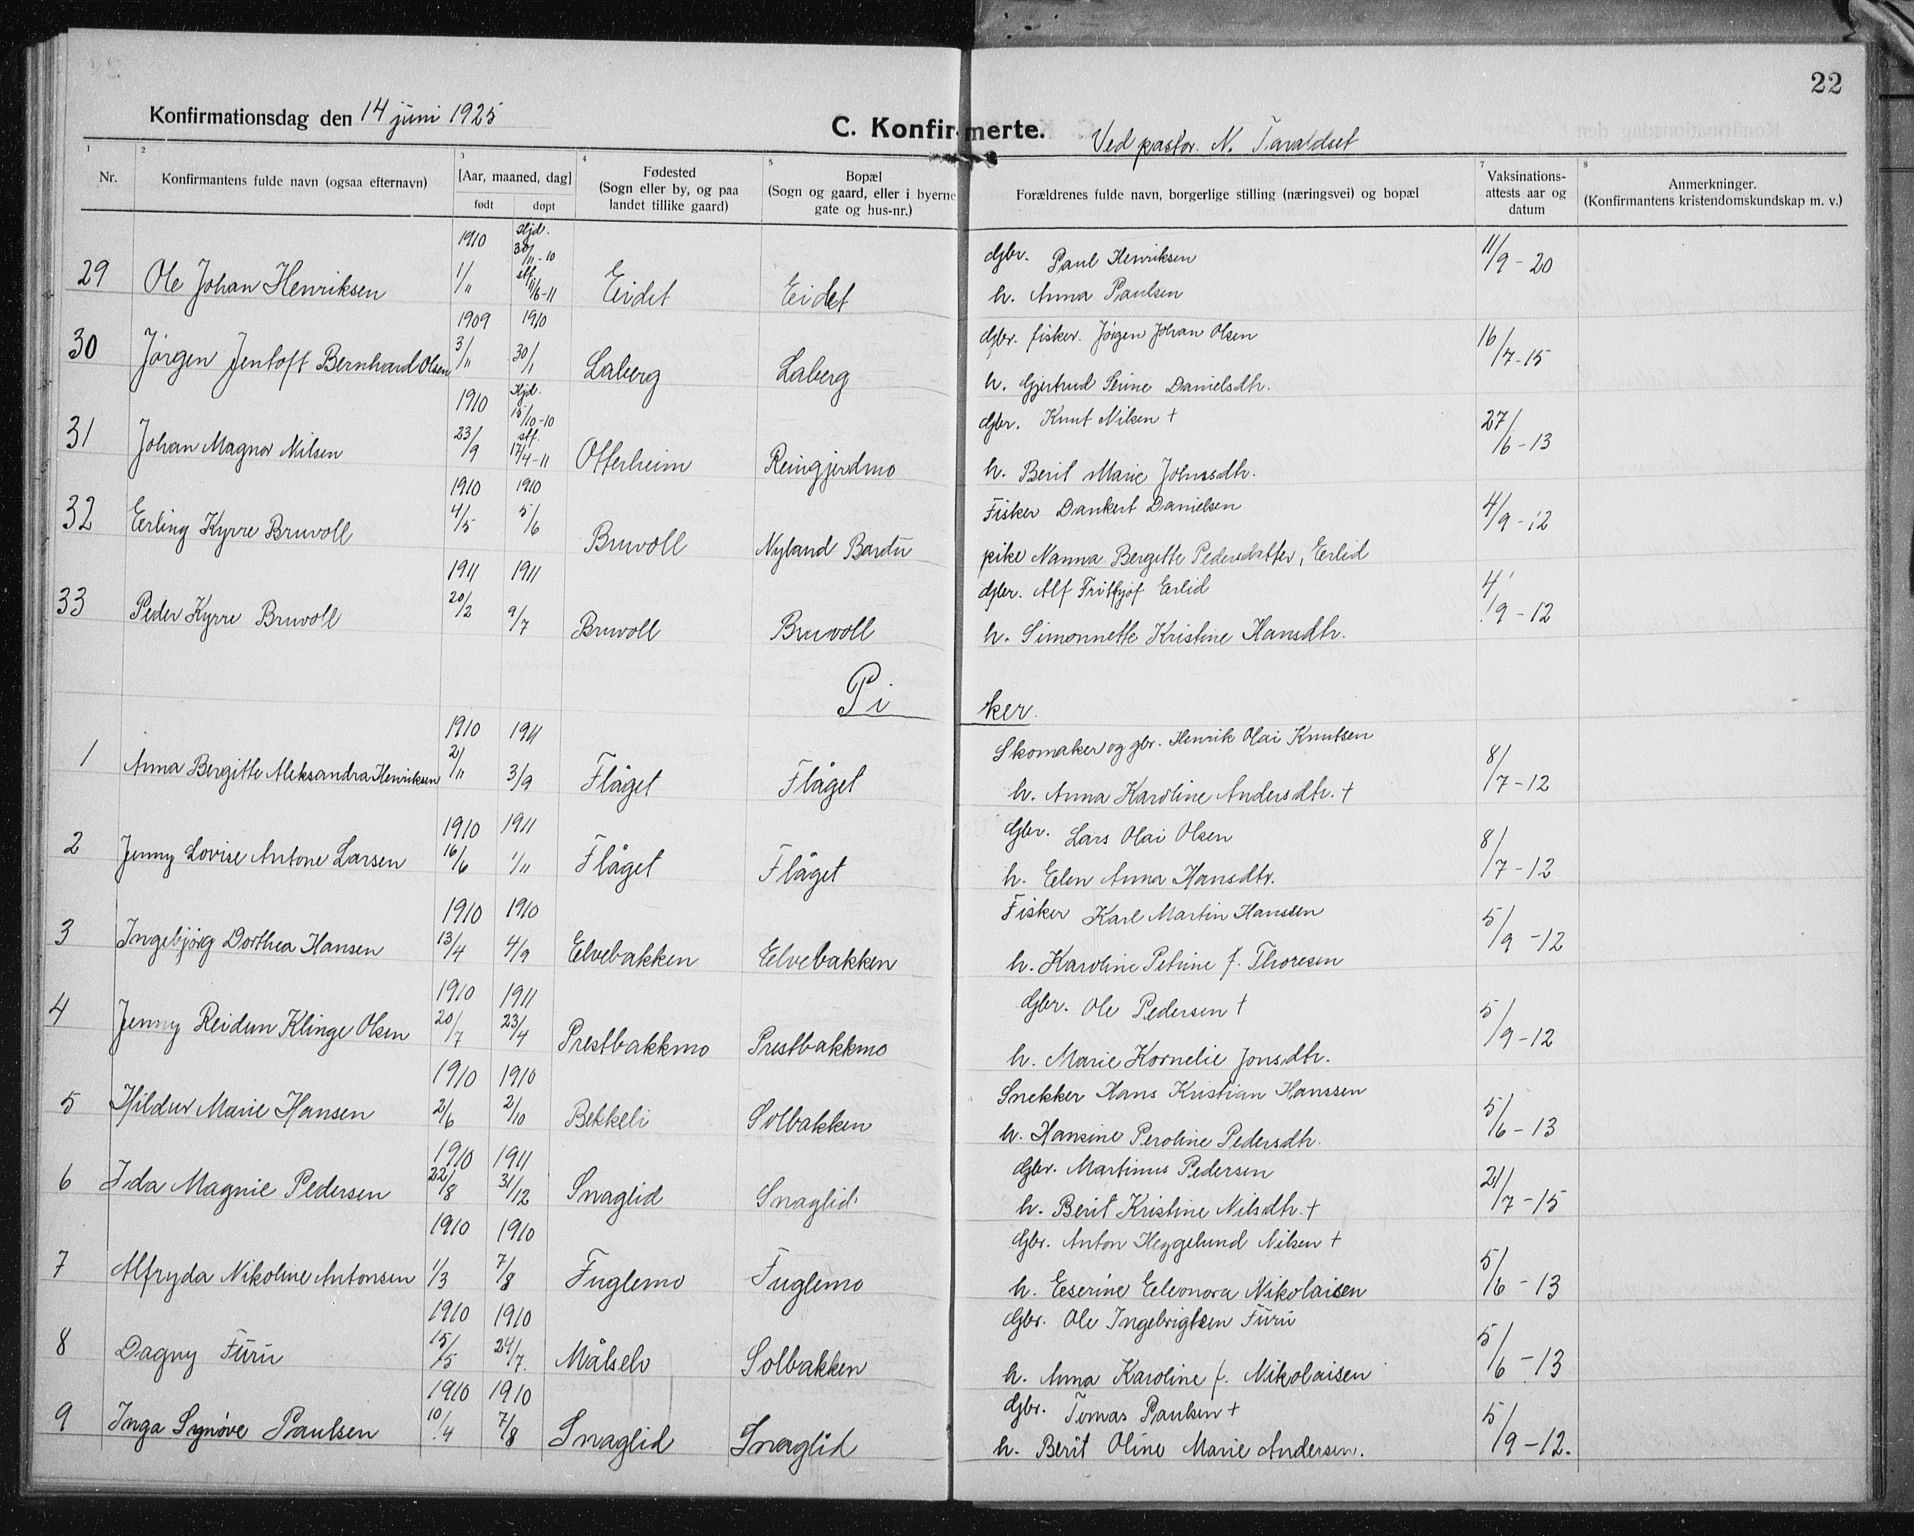 22
Konfirmationsdag den 14 juni 1925
C. Konfirmerte.
Ved pastor. N. Taraldset
1 2 3 4 5 7 8
Nr. Konfirmantens fulde navn (ogsaa efternavn) [Aar, maaned, dag] født døpt Fødested (Sogn eller by, og paa landet tillike gaard) Bopæl (Sogn og gaard, eller i byerne gate og hus-nr.) Forældrenes fulde navn, borgerlige stilling (næringsvei) og bopæl Vaksinations-attests aar og datum Anmerkninger. (Konfirmantens kristendomskundskap m. v.)
1910 Hjd. 30/11-10 Gbr. Paul Henriksen 11/9-20
29 Ole Johan Henriksen 1/11 stf 11/6-11 Eidet Eidet h. Anna Paulsen
1909 1910 Gbr. fisker. Jørgen Johan Olsen 16/7-15
30 Jørgen Jentoft Bernhard Olsen 3/11 30/1 Laberg Laberg h. Gjertrud Serine Danielsdtr.
1910 Hjd. 15/10-10 Gbr. Knut Nilsen + 27/6-13
31 Johan Magnor Nilsen 23/9 stf. 17/4-11 Otterheim Reingjerdmo h. Berit Marie Johnsdtr.
1910 1910 Fisker Dankert Danielsen 4/9-12
32 Erling Kyrre Bruvoll 4/5 5/6 Bruvoll Nyland Bardu pike Nanna Bergitte Pedersdatter, Erlid
1911 1911 Gbr. Alf Fritfjof Erlid 4/9-12
33 Peder Kyrre Bruvoll 20/2 9/7 Bruvoll Bruvoll h. Simonnette Kristine Hansdtr.
Piker.
1910 1911 Skomaker og gbr. Henrik Olai Knutsen 8/7-12
1 Anna Bergitte Aleksandra Henriksen 2/11 3/9 Flåget Flåget h. Anna Karoline Andersdtr. +
1910 1911 Gbr. Lars Olai Olsen 8/7-12
2 Jenny Lovise Antone Larsen 16/6 1/11 Flåget Flåget h. Elen Anna Hansdtr.
1910 1910 Fisker Karl Martin Hanssen 5/9-12
3 Ingebjørg Dorthea Hansen 13/4 4/9 Elvebakken Elvebakken h. Karoline Petrine f. Thoresen
1910 1911 Gbr. Ole Pedersen + 5/9-12
4 Jenny Reidun Klinge Olsen 20/7 23/4 Prestbakkmo Prestbakkmo h. Marie Kornelie Jonsdtr.
1910 1910 Snekker Hans Kristian Hanssen 5/6-13
5 Hildur Marie Hansen 2/6 2/10 Bekkeli Solbakken h. Hansine Peroline Pedersdtr.
1910 1911 Gbr. Martinus Pedersen 21/7-15
6 Ida Magnie Pedersen 22/8 31/12 Snaglid Snaglid h. Berit Kristine Nilsdtr. +
1910 1910 Gbr. Anton Heggelund Nilsen + 5/6-13
7 Alfryda Nikoline Antonsen 1/3 7/8 Fuglemo Fuglemo h. Eserine Eleonora Nikolaisen
1910 1910 Gbr. Ole Ingebrigtsen Furu 5/6-13
8 Dagny Furu 15/5 24/7. Målselv Solbakken h. Anna Karoline f. Nikolaisen
1910 1910 Gbr. Tomas Paulsen + 5/9-12.
9 Inga Synøve Paulsen 10/4 7/8 Snaglid Snaglid h. Berit Oline Marie Andersen.